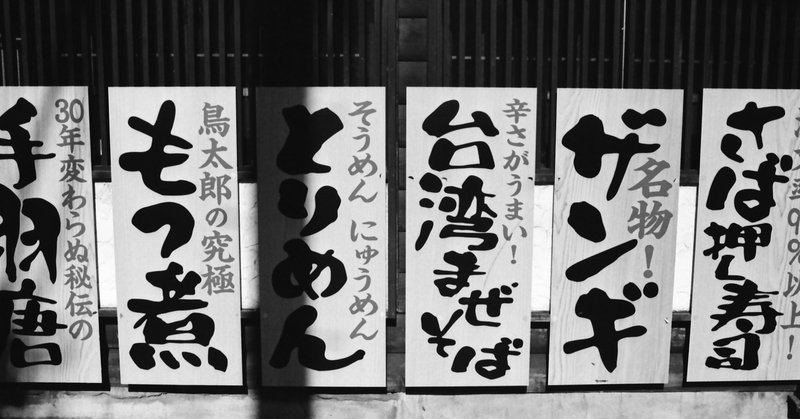 30年変わらぬ秘伝の
手羽唐
鳥太郎の究極
もつ煮
そうめん にゅうめん
とりめん
辛さがうまい!
台湾まぜそば
名物!
ザンギ
%以上!
さば押し寿司